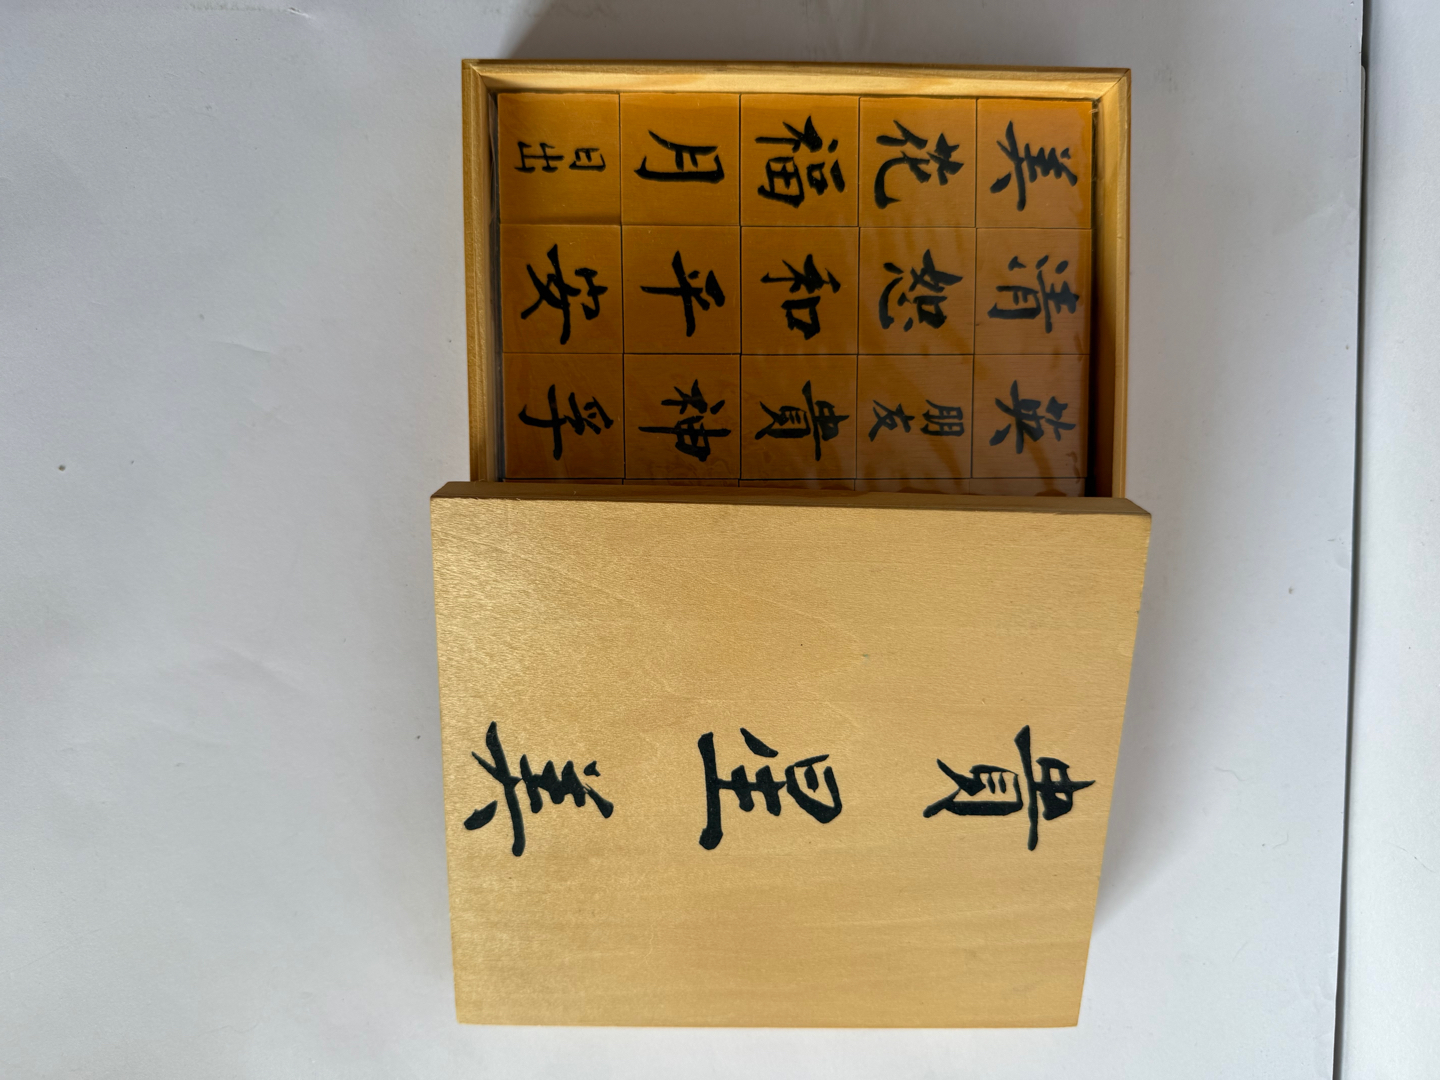 美 清 英
花 恕 朋友
福 和 貴
月 平 神
日出 安 幸
貴
星
美